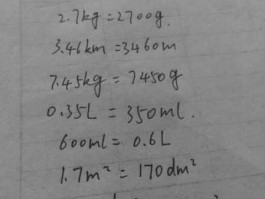 2.7kg=2700g.
3.46km=3460m
7.45kg=7450g
0.35L=350ml.
600ml=0.6L
1.7m²=170dm²